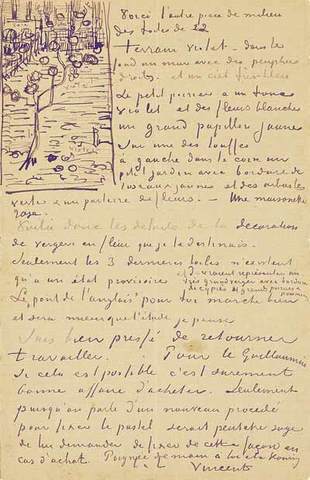 Voici l'autre piece de milieu
des toiles de 12
terrain violet – dans le
fond un mur avec des peupliers
droits – et un ciel très bleu
Le petit poirier a un tronc
violet et des fleurs blanches
un grand papillon jaune
sur une des touffes
à gauche dans le coin un
petit jardin avec bordure de
roseaux jaunes et des arbustes
verts & un parterre de fleurs. – Une maisonette
rose.
Voilà donc les details de la decoration
de vergers en fleur que je te destinais.
Seulement les 3 dernieres toiles n'existent
qu'a un état provisoire et devraient représenter un
très grand verger avec bordure
de cyprès & grands poiriers &
pommiers
Le "pont de l'anglais" pour toi marche bien
et sera mieux que l'étude je pense
Suis bien pressé de retourner
travailler. Pour le Guillaumin
si cela est possible c'est surement
bonne affaire d'acheter. Seulement
puisqu'on parle d'un nouveau procedé
pour fixer le pastel serait peutetre sage
de lui demander de fixer de cette façon en
cas d'achat. Poignée de main à toi et à Koning
Vincent